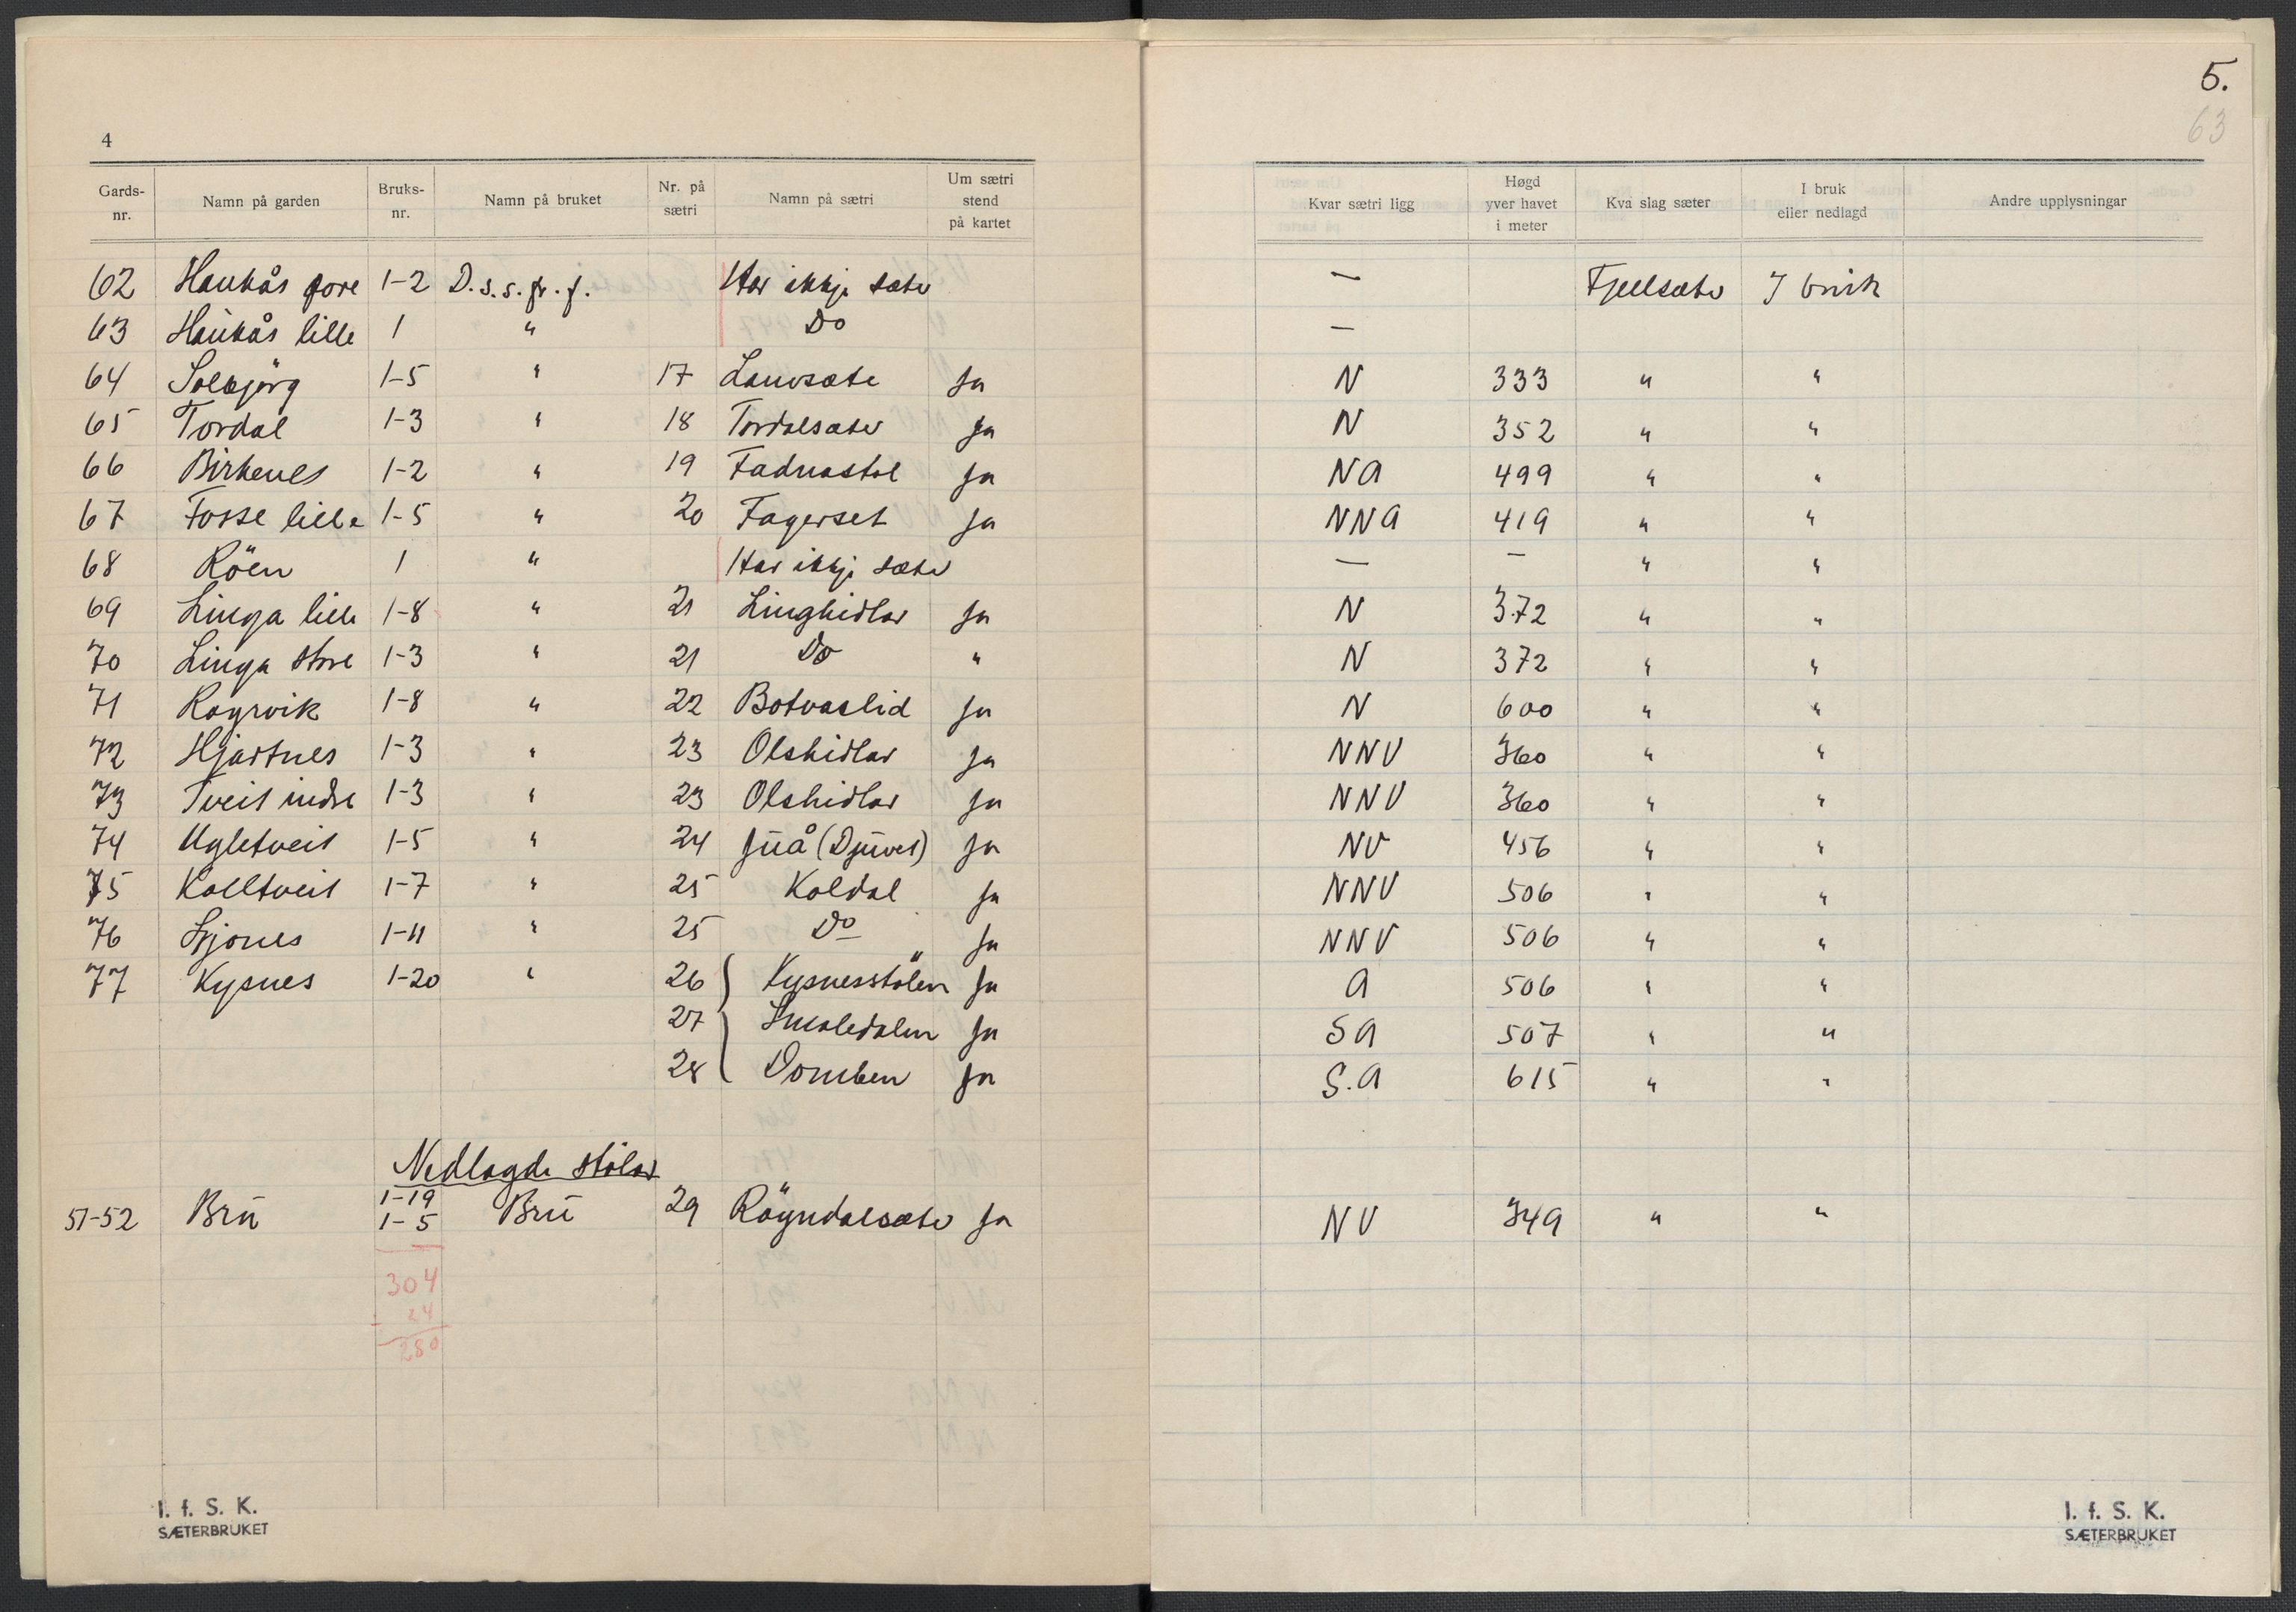 5.
63
4
Gards-nr. Namn på garden Bruks-nr. Namn på bruket Nr. på sætri Namn på sætri Um sætri stend på kartet Kvar sætri ligg Høgd yver havet i meter Kva slag sæter I bruk eller nedlagd Andre upplysningar
62 Haukås 1-2 D.s.s.fr.f. Har ikkje sæter — Fjellsæter I bruk
63 Haukås lille 1 " Do —
64 Solbjörg 1-5 " 17 Lauvsæte Ja N 333 " "
65 Tordal 1-3 " 18 Tordalsæter Ja N 352 " "
66 Birkenes 1-2 " 19 Fadnastøl Ja NA 499 " "
67 Fosse lille 1-5 " 20 Fagerset Ja NNA 419 " "
68 Röen 1 " Har ikkje sæter — — " "
69 Linga lille 1-8 " 21 Linghidlar Ja N 372 " "
70 Linga store 1-3 " 21 Do " N 372 " "
71 Røyrvik 1-8 " 22 Botnaslid Ja N 600 " "
72 Hjartnes 1-3 " 23 Olshidlar Ja NNV 360 " "
73 Tveit indre 1-3 " 23 Olshidlar Ja NNV 360 " "
74 Ugletveit 1-5 " 24 Juå (Djuvet) Ja NV 456 " "
75 Kolltveit 1-7 " 25 Koldal Ja NNV 506 " "
76 1-11 " 25 Do Ja NNV 506 " "
77 Kysnes 1-20 " 26 Kysnesstölen Ja A 506 " "
27 Smaledalen Ja SA 507 " "
28 Domben Ja S.A 615 " "
Nedlagde stölar
51-52 Bru 1-19 1-5 Bru 29 Röyndalsæter Ja NV 349 " "
304
- 24
280
I. f. S. K.
SÆTERBRUKET
I. f. S. K.
SÆTERBRUKET